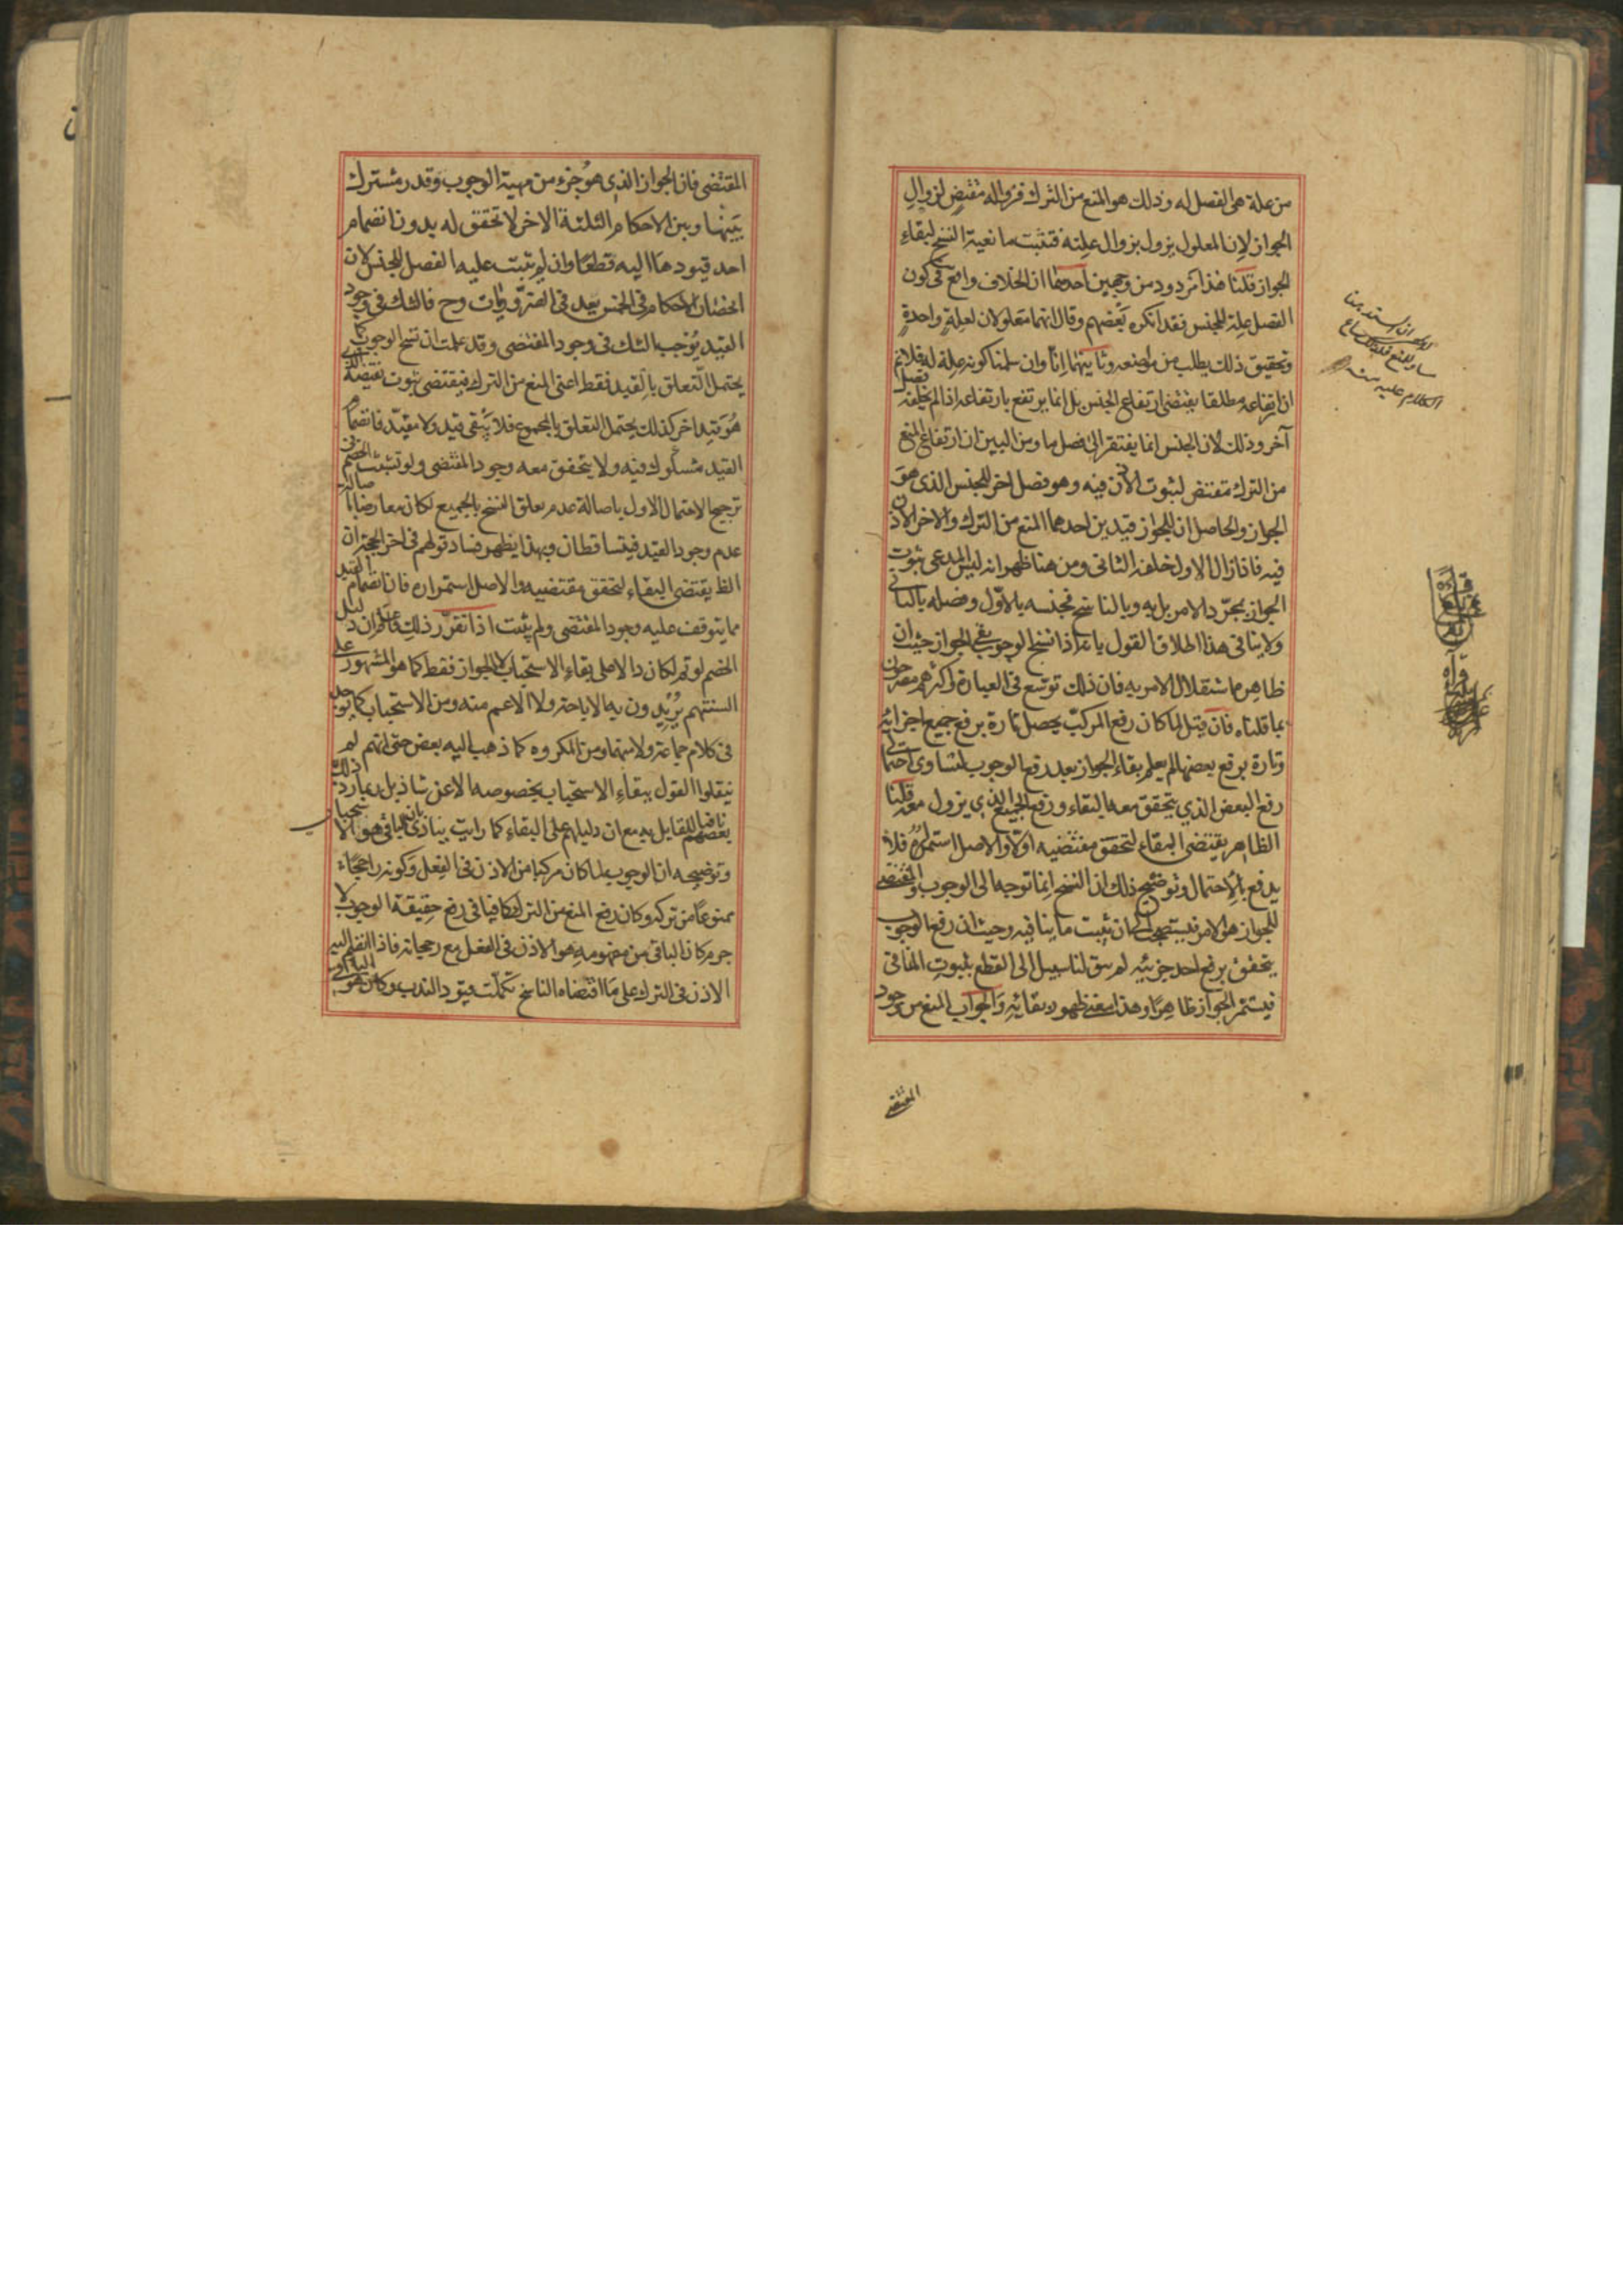 من علة هى الفصل له وذلك هو المنع من الترك فزواله مقتض لزوال
الجواز لان المعلول يزول بزوال علته فتثبت مانعية النسخ لبقاء
الجواز قلنا هذا مردود من وجهين احدهما ان الخلاف واقع فى كون
الفصل علة للجنس فقد انكره بعضهم وقال انهما معلولان لعلة واحدة
وتحقيق ذلك يطلب من مواضعه وثانيهما انا وان سلمنا كونه علة له فلا نم
ان ارتفاعه مطلقا يقتضى ارتفاع الجنس بل انما يرتفع بارتفاعه اذا لم يخلفه فصل
آخر وذلك لان الجنس انما يفتقر الى فصل ما ومن البين ان ارتفاع المنع
من الترك مقتض لثبوت الاذن فيه وهو فصل اخر للجنس الذى هو
الجواز والحاصل ان للجواز قيدين احدهما المنع من الترك والاخر الاذن
فيه فاذا زال الاول خلفه الثانى ومن هنا ظهر انه ليس المدعى ثبوت
الجواز بمجرد الامر بل به وبالناسخ فجنسه بالاول وفصله بالثانى
ولا ينافى هذا اطلاق القول بانه اذا نسخ الوجوب بقى الجواز حيث ان
ظاهره استقلال الامر به فان ذلك توسع فى العبارة واكثرهم مصرحون
بما قلناه فان قيل لما كان رفع المركب يحصل تارة برفع جميع اجزائه
وتارة برفع بعضها لم يعلم بقاء الجواز بعد رفع الوجوب لتساوى احتمالى
رفع البعض الذي يتحقق معه البقاء ورفع الجميع الذي يزول معه قلنا
الظاهر يقتضى البقاء لتحقق مقتضيه اولا والاصل استمراره فلا
يدفع بالاحتمال وتوضيح ذلك ان النسخ انما توجه الى الوجوب والمقتضى
للجواز هو الامر فيستصحب الى ان يثبت ما ينافيه وحيث ان رفع الوجوب
يتحقق برفع احد جزئيه لم يبق لنا سبيل الى القطع بثبوت المنافى
فيستمر الجواز ظاهرا وهذا معنى ظهور بقائه والجواب المنع من وجود
المقتضى
المقتضى فان الجواز الذي هو جزء من مهية الوجوب وقدر مشترك
بينها وبين الاحكام الثلثة الاخر لا تحقق له بدون انضمام
احد قيودها اليه قطعا وان لم تثبت علية الفصل للجنس لان
انحصار الاحكام فى الخمس يعد فى الضروريات وح فالشك فى وجود
القيد يوجب الشك فى وجود المقتضى وقد علمت ان نسخ الوجوب كما
يحتمل التعلق بالقيد فقط اعنى المنع من الترك فيقتضى ثبوت نقيضه الذى
هو قيد اخر كذلك يحتمل التعلق بالمجموع فلا يبقى قيد ولا مقيد فانضمام
القيد مشكوك فيه ولا يتحقق معه وجود المقتضى ولو تشبث الخصم فى
ترجيح الاحتمال الاول باصالة عدم تعلق النسخ بالجميع لكان معارضا باصالة
عدم وجود القيد فيتساقطان وبهذا يظهر فساد قولهم فى اخر الحجة ان
الظ يقتضى البقاء لتحقق مقتضيه والاصل استمراره فان انضمام القيد
مما يتوقف عليه وجود المقتضى ولم يثبت اذا تقرر ذلك فاعلم ان دليل
الخصم لو تم لكان دالا على بقاء الاستحباب لا الجواز فقط كما هو المشهور على
السنتهم يريدون به الاباحة ولا الاعم منه ومن الاستحباب كما يوجد
فى كلام جماعة ولا منهما ومن المكروه كما ذهب اليه بعض حتى انهم لم
ينقلوا القول ببقاء الاستحباب بخصوصه الا عن شاذ بل ربما رد ذلك
بعضهم نافيا للقايل به مع ان دليلهم على البقاء كما رايت ينادى بان الباقى هو الاستحباب
وتوضيحه ان الوجوب لما كان مركبا من الاذن فى الفعل وكونه راجحا
ممنوعا من تركه وكان رفع المنع من الترك كافيا فى رفع حقيقة الوجوب لا
جرم كان الباقى من مفهومه هو الاذن فى الفعل مع رجحانه فاذا انضم اليه
الاذن فى الترك على ما اقتضاه الناسخ تكملت قيود الندب وكان هو الباقى